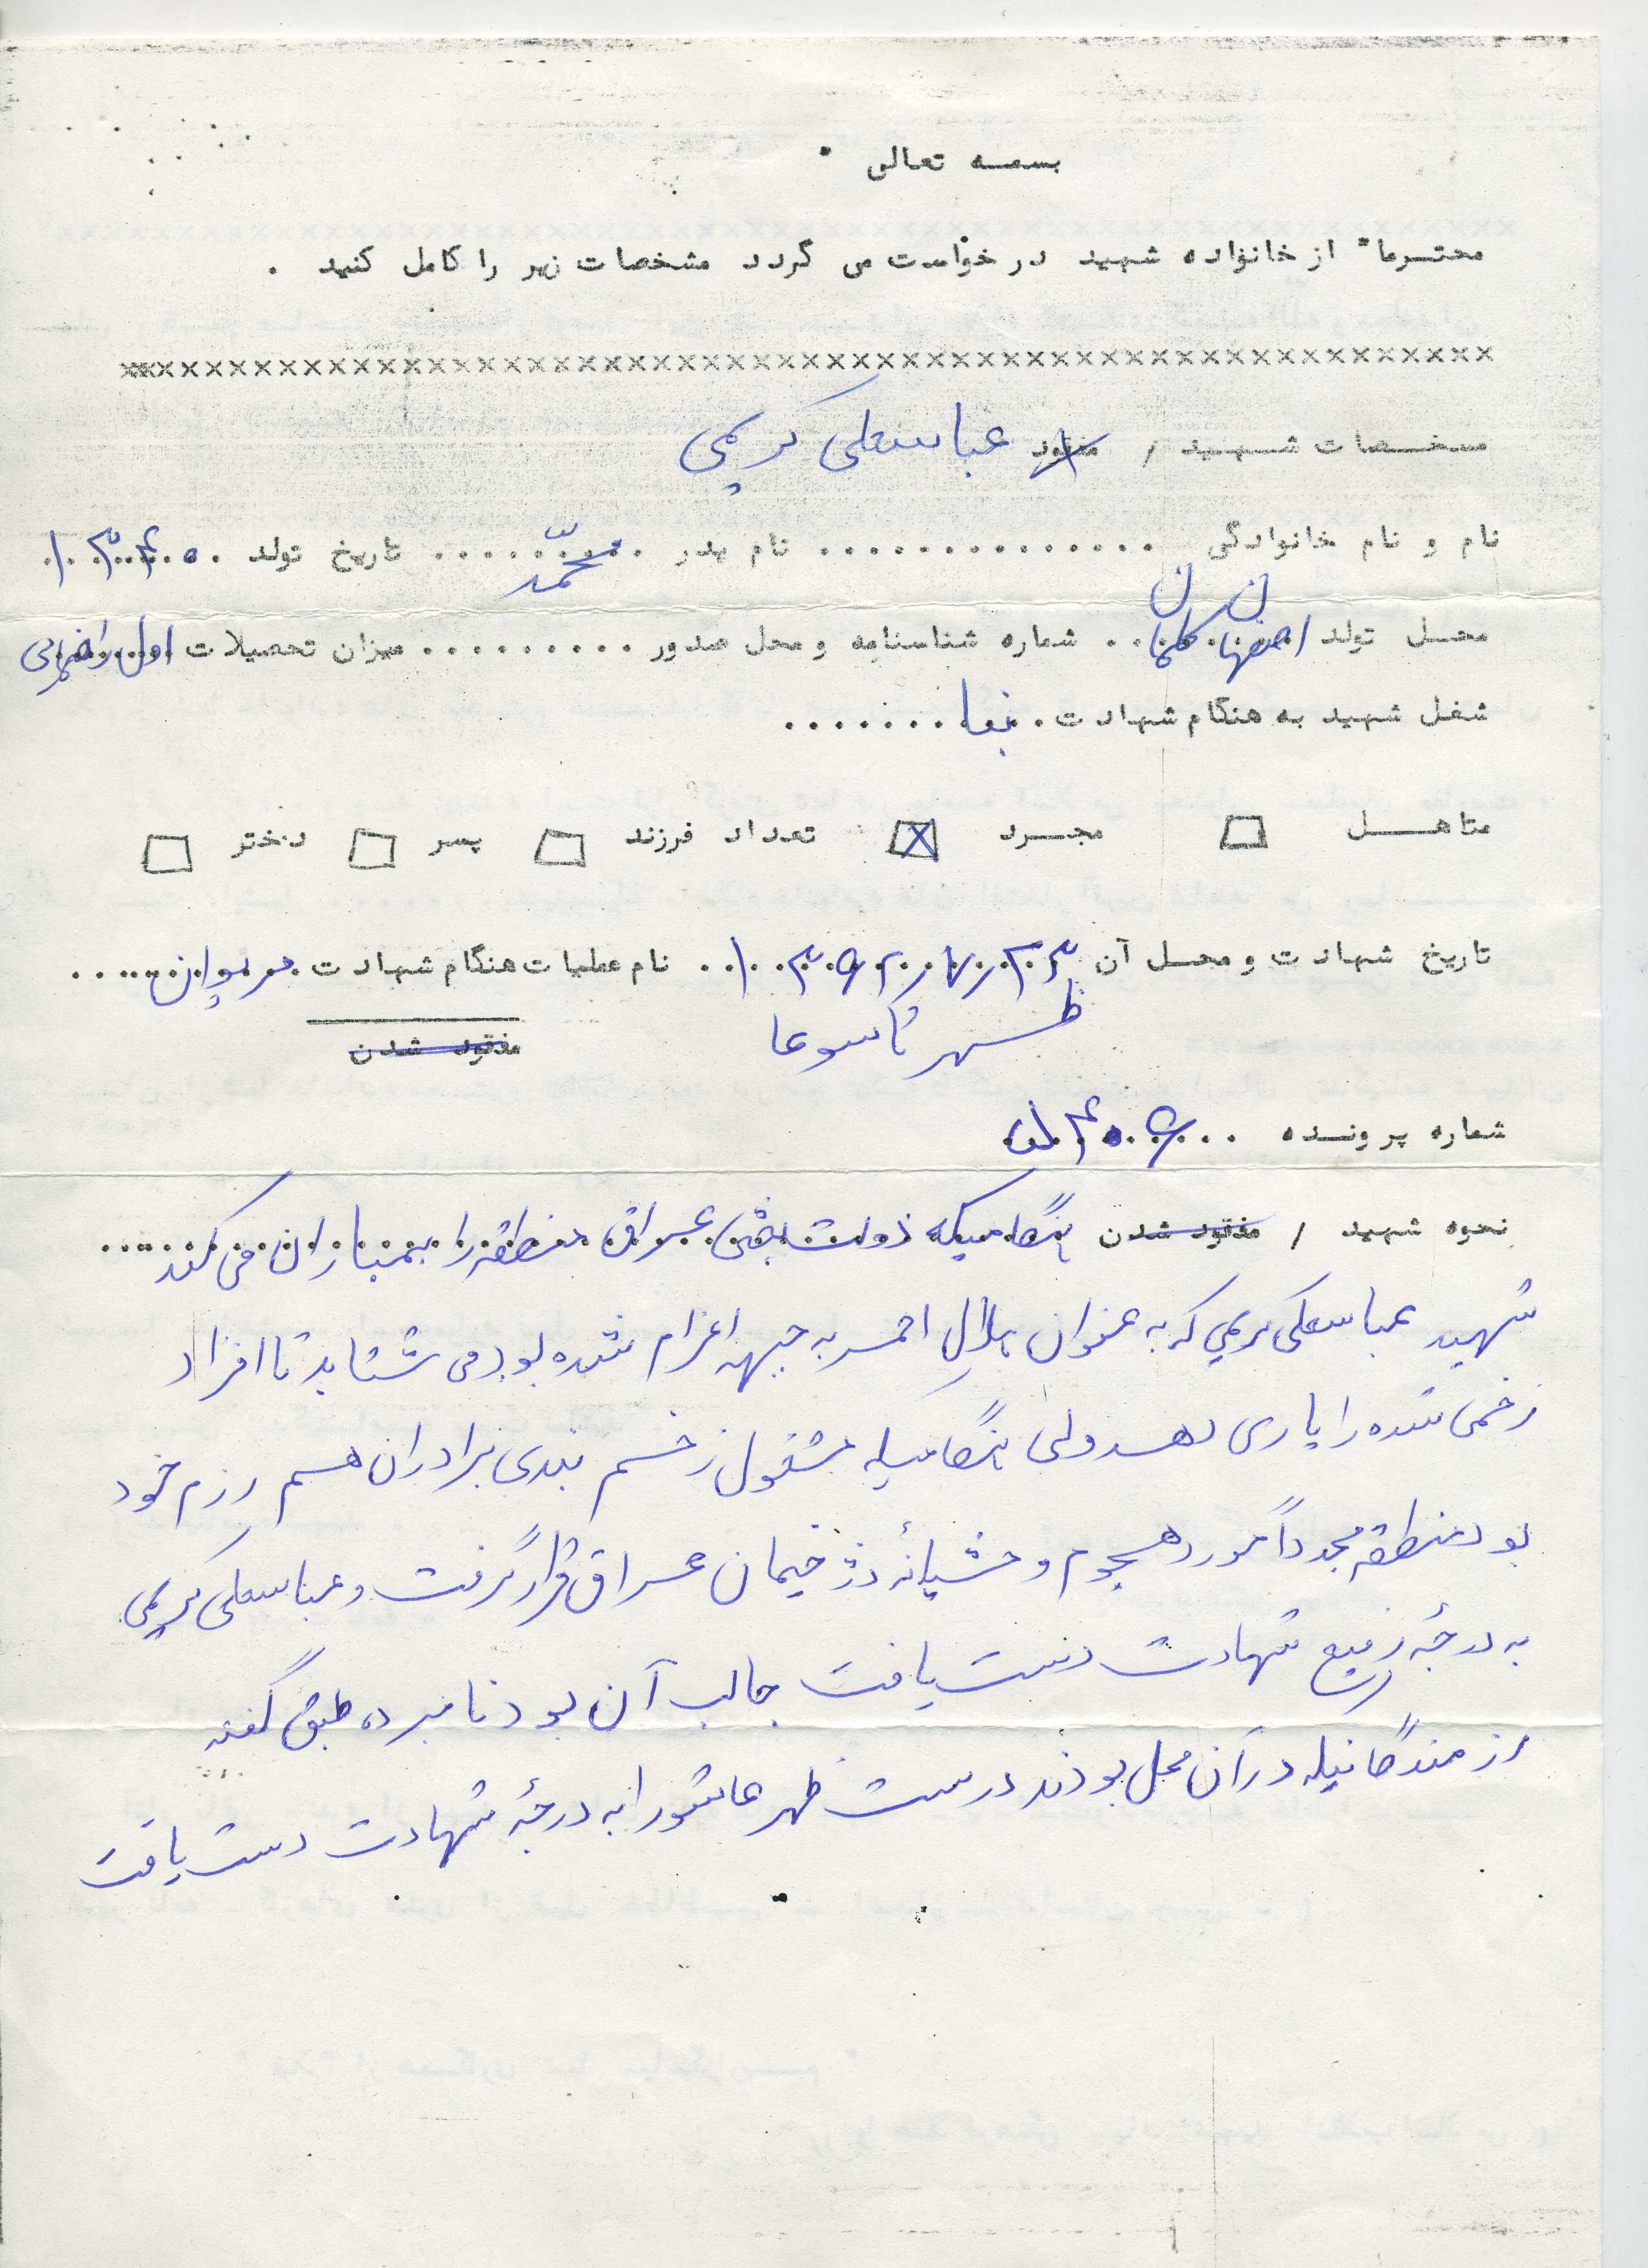 بسمه تعالی
محترما" از خانواده شهید درخواست می گردد مشخصات زیر را کامل کنید .
xxxxxxxxxxxxxxxxxxxxxxxxxxxxxxxxxxxxxxxxxxxxxxxxxxxxxx
مشخصات شهید / مفقود عباسعلی کریمی
نام و نام خانوادگی .............. نام پدر محمّد تاریخ تولد ۱۳۴۰
محل تولد اصفهان شماره شناسنامه و محل صدور ......... میزان تحصیلات اول راهنمایی
شغل شهید به هنگام شهادت بنا
متاهل □ مجرد ☒ تعداد فرزند □ پسر □ دختر □
تاریخ شهادت و محل آن نام عملیات هنگام شهادت مریوان
مفقود شدن
ظهر تاسوعا
شماره پرونده
نحوه شهید / مفقود شدن هنگامیکه دولت بعثی عراق منطقه را بمباران می کند
شهید عباسعلی کریمی که به عنوان هلال احمر به جبهه اعزام شده بود می شتابد تا افراد
زخمی شده را یاری دهد ولی هنگامیکه مشغول زخم بندی برادران هم رزم خود
بود منطقه مجدداً مورد هجوم وحشیانۀ دژخیمان عراق قرار گرفت و عباسعلی کریمی
به درجۀ رفیع شهادت دست یافت جالب آن بود نامبرده طبق گفته
رزمندگانیکه در آن محل بودند درست ظهر عاشورا به درجۀ شهادت دست یافت